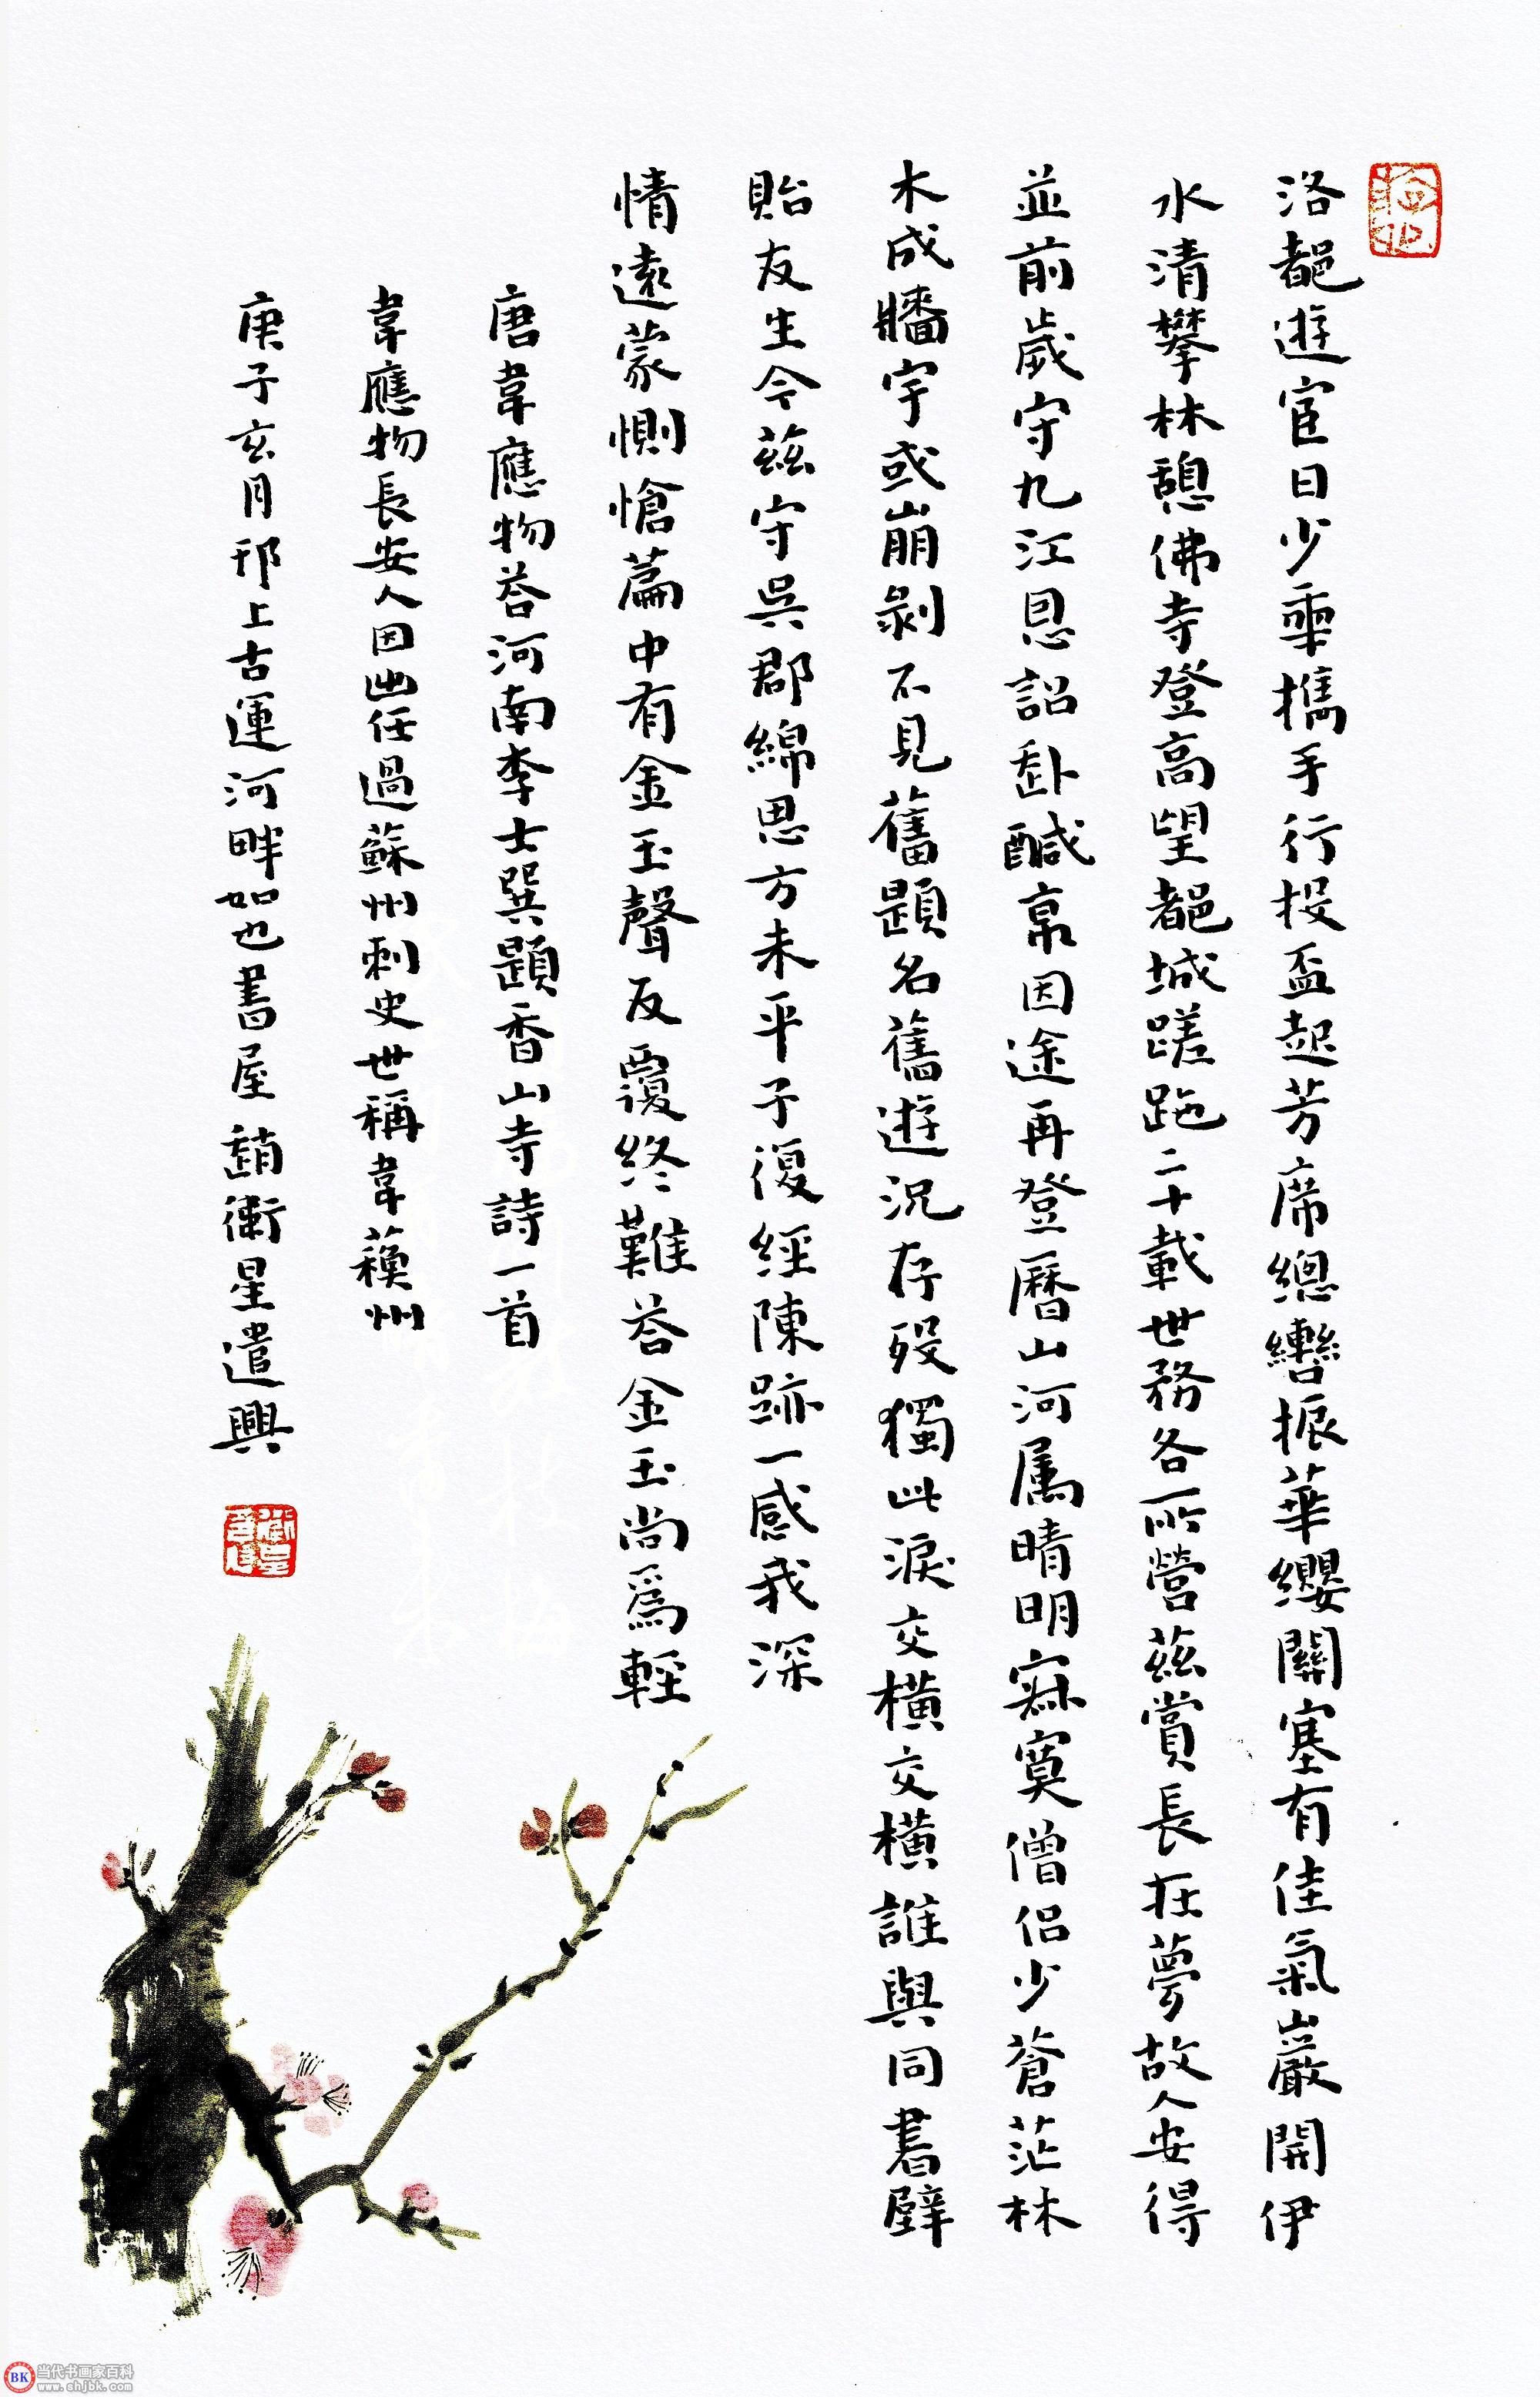 洛都遊宦日少年攜手行投盃起芳席總轡振華纓關塞有佳氣巖開伊
水清攀林憩佛寺登高望都城蹉跎二十載世務各所營茲賞長在夢故人安得
並前歲守九江恩詔赴咸京因途再登曆山河属晴明寂寞僧侶少蒼茫林
木成牆宇或崩剝不見舊題名舊遊況存歿獨此淚交橫交橫誰與同書壁
貽友生今茲守吳郡綿思方未平子復經陳跡一感我深
情遠蒙惻愴篇中有金玉聲反覆終難荅金玉尚為輕
唐韋應物荅河南李士巽題香山寺詩一首
韋應物長安人因出任過蘇州刺史世稱韋蘇州
庚子亥月邗上古運河畔如也書屋趙衛星遣興
BK 当代书画家百科
www.shjbk.com